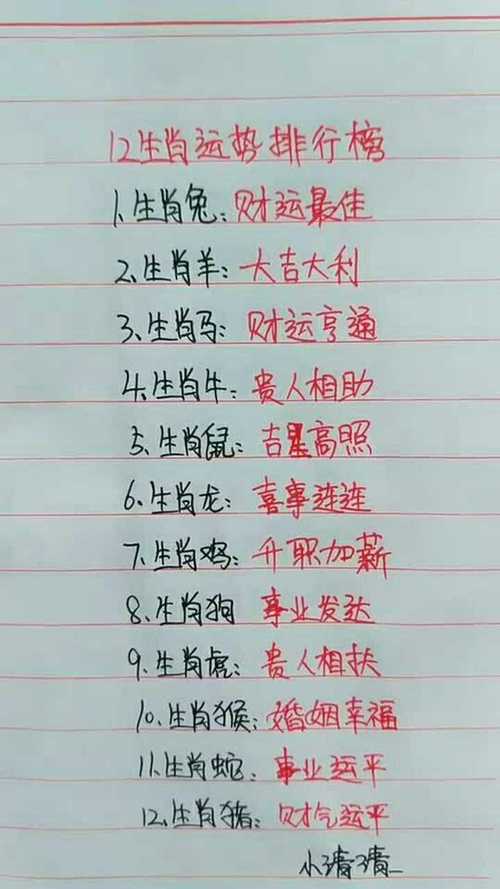 12生肖运势排行榜
1.生肖兔:财运最佳
2.生肖羊:大吉大利
3.生肖马:财运亨通
4.生肖牛:贵人相助
5.生肖鼠:吉星高照
6.生肖龙:喜事连连
7.生肖鸡:升职加薪
8.生肖狗 事业发达
9.生肖虎:贵人相扶
10.生肖猴:婚姻幸福
11.生肖蛇:事业运平
12.生肖猪:财气运平
小清清